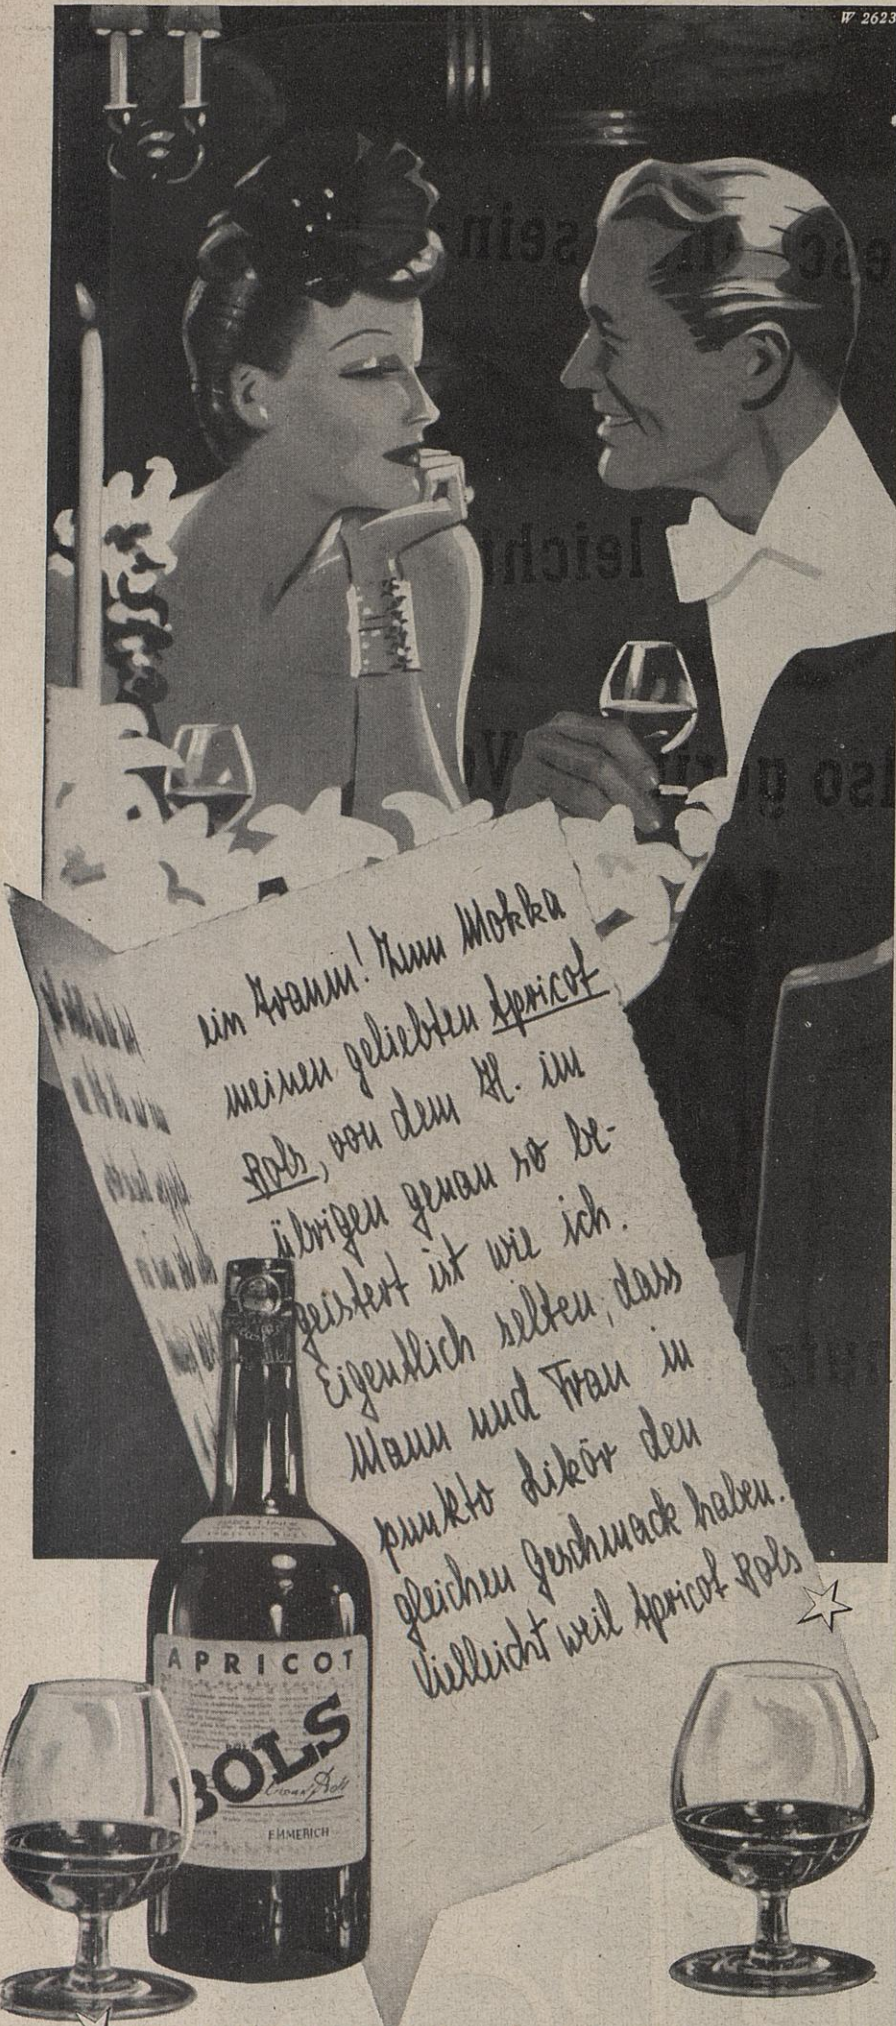 W 2623
ein Traum! Zum Mokka
meinen geliebten Apricot
Bols, von dem H. im
übrigen genau so be-
geistert ist wie ich.
Eigentlich selten, dass
Mann und Frau in
punkto Likör den
gleichen Geschmack haben.
Vielleicht weil Apricot Bols
APRICOT
BOLS
EMMERICH